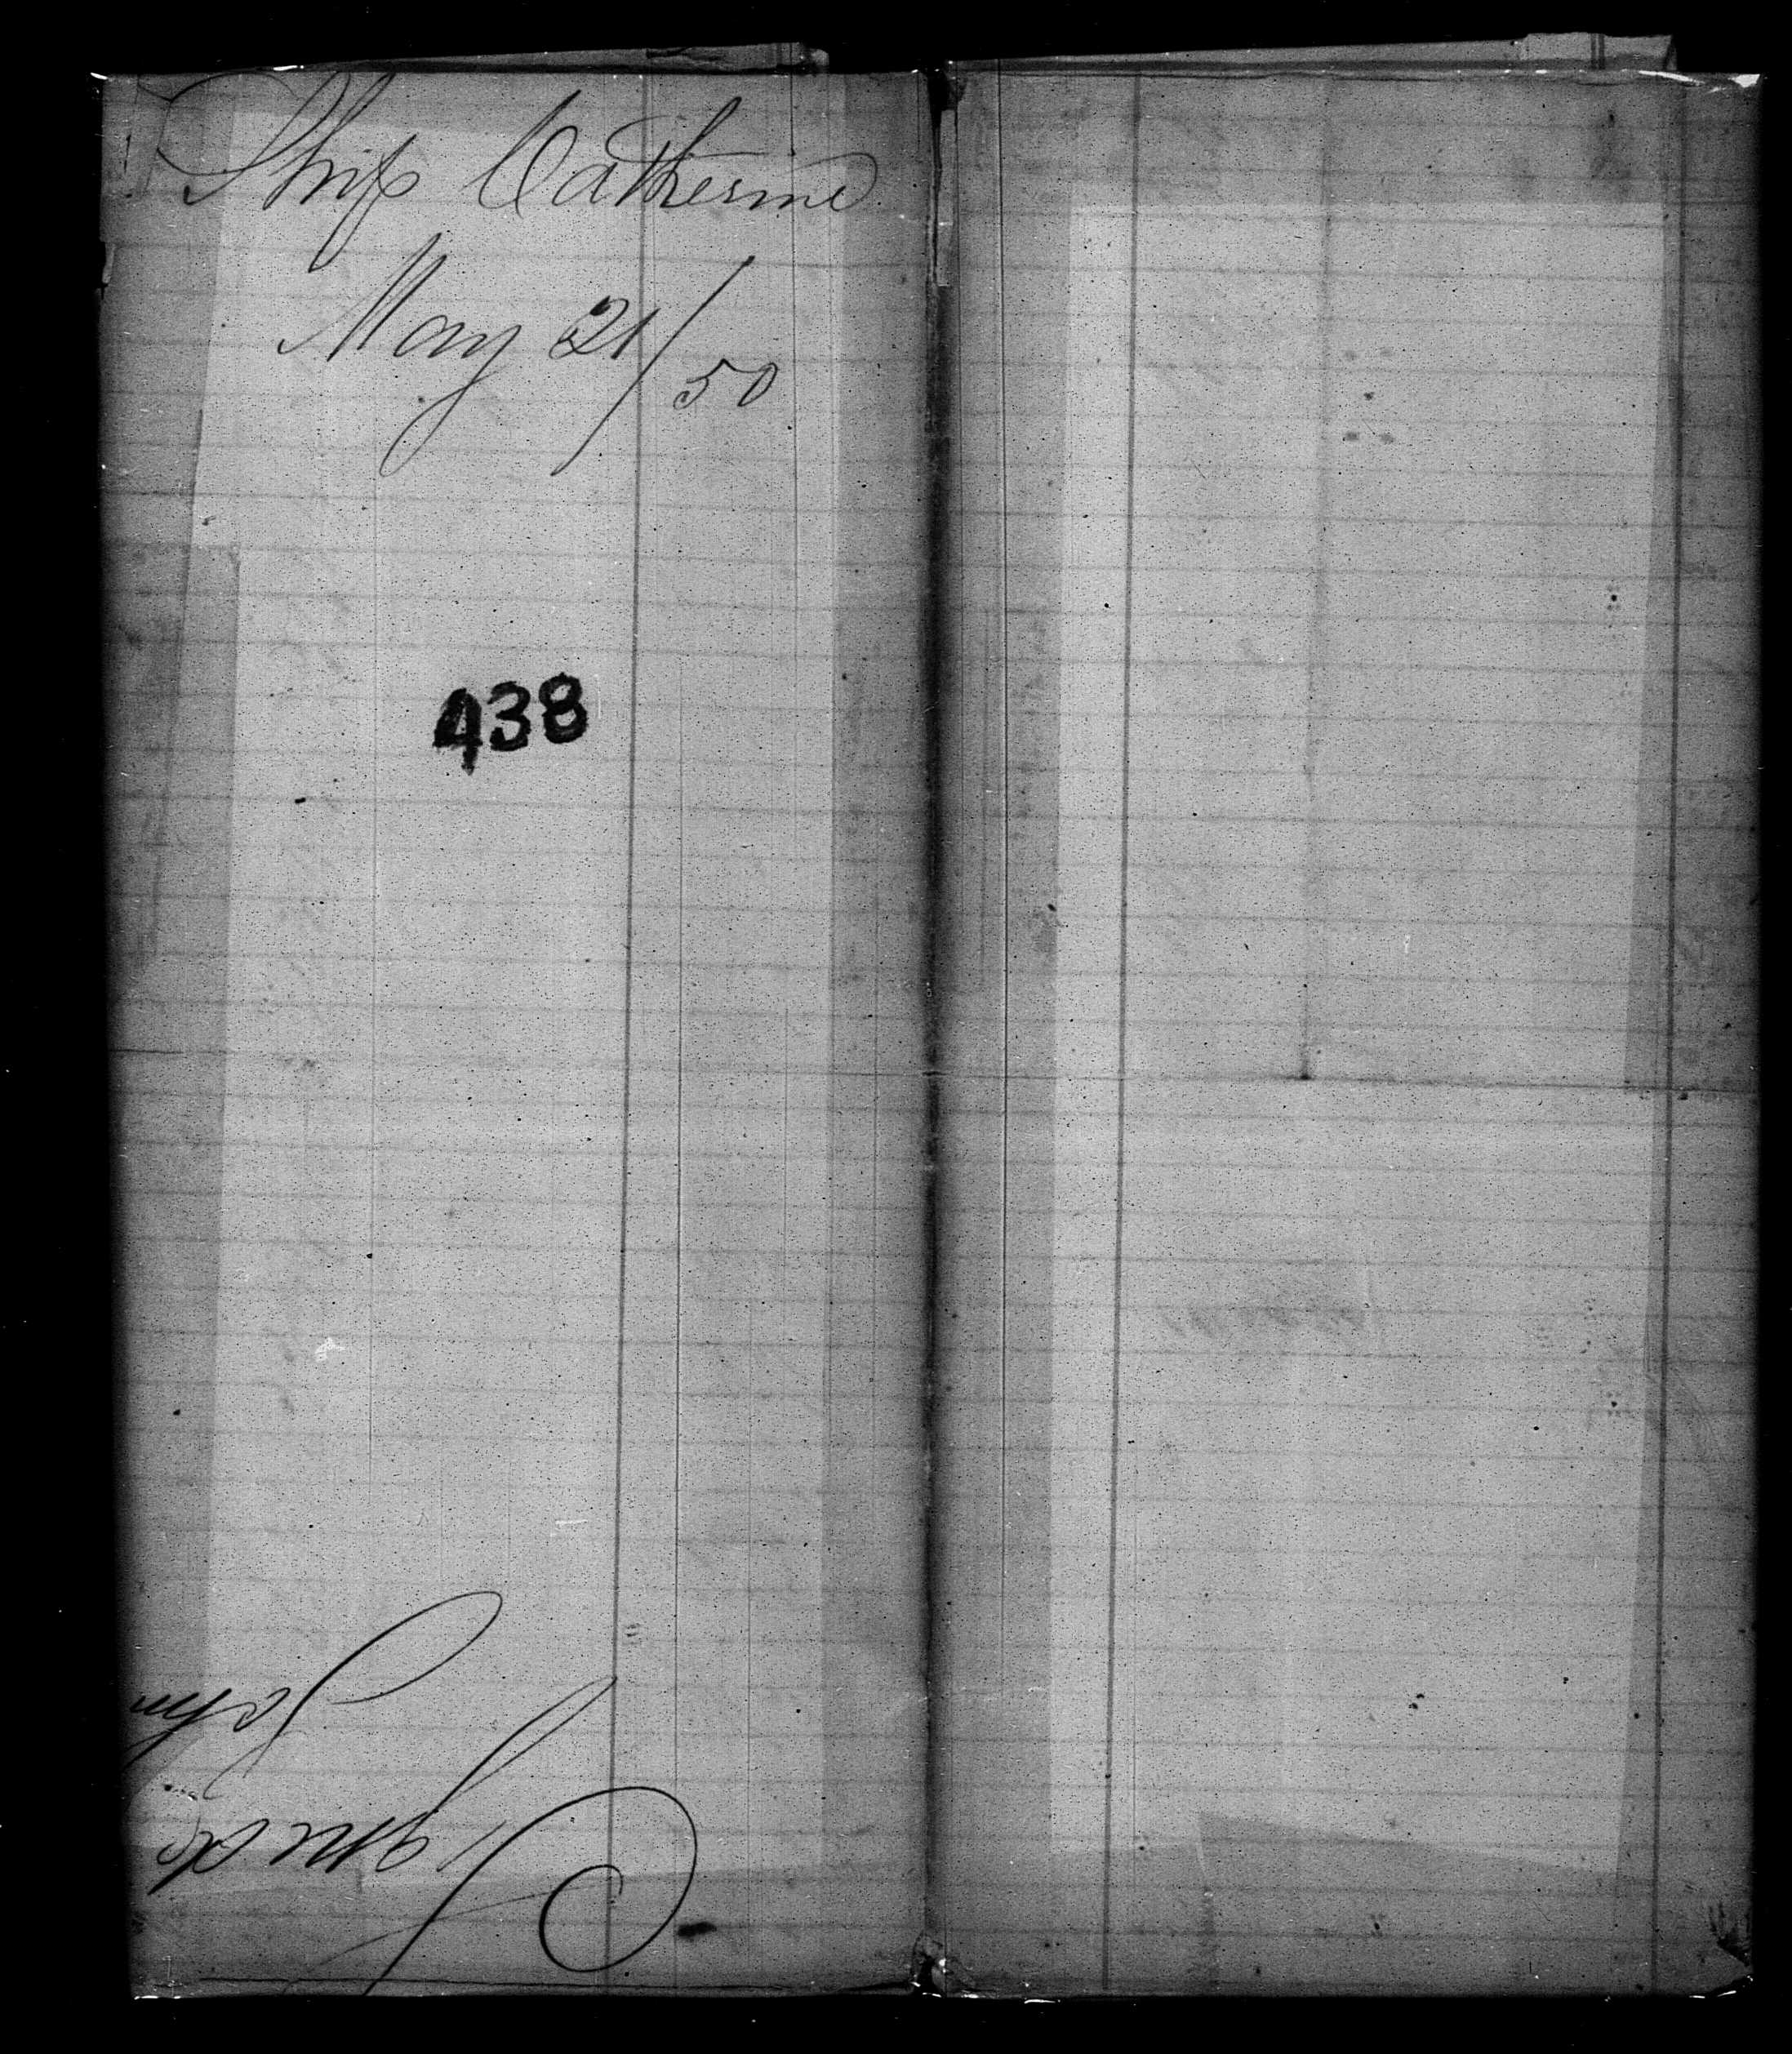 Ship Catherine
May 21/50
438
John